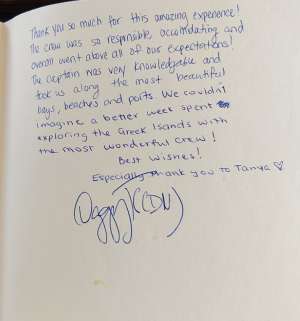 Thank you so much for this amazing experience!
The crew was so responsible, accomidating and
overall went above all of our expectations!
The captain was very knowledgeable and
took us along the most beautiful
bays, beaches and ports. We couldn't
imagine a better week spent
exploring the Greek Islands with
the most wonderful crew!
Best wishes!
Especially thank you to Tanya ♡